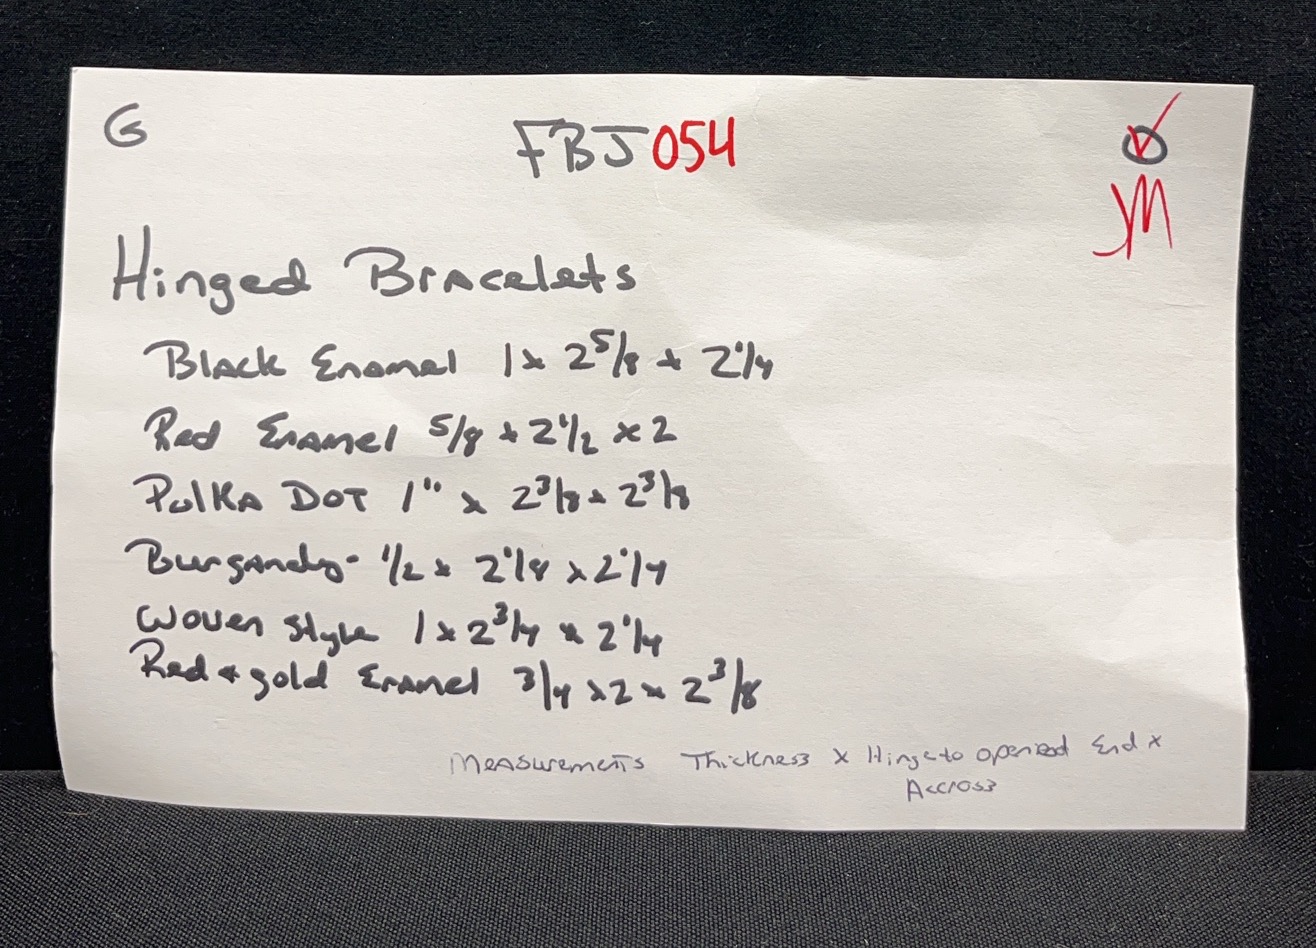 G
FBJ054
JM
Hinged Bracelets
Black Enamel 1 x 2 5/8 x 2 1/4
Red Enamel 5/8 x 2 1/2 x 2
Polka Dot 1" x 2 3/8 x 2 3/8
Burgandy- 1/2 x 2 1/8 x 2 1/4
Woven Style 1 x 2 3/4 x 2 1/4
Red & gold Enamel 3/4 x 2 x 2 3/8
Measurements Thickness x Hinge to opened End x
Accross